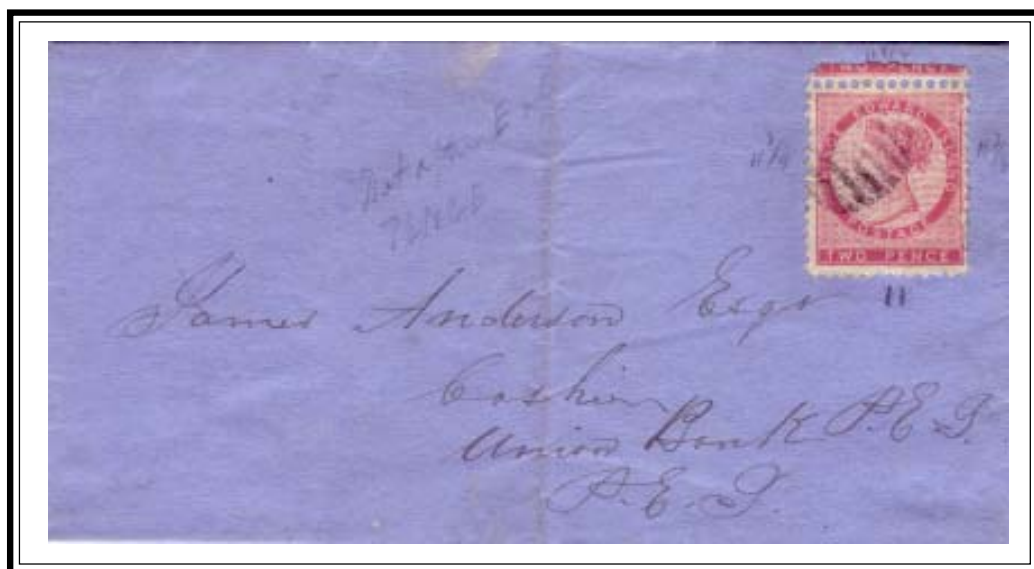 TWO PENCE
PRINCE EDWARD ISLAND
POSTAGE
TWO PENCE
11
James Anderson Esqr
Cashier
Union Bank P.E.I.
P.E.I.